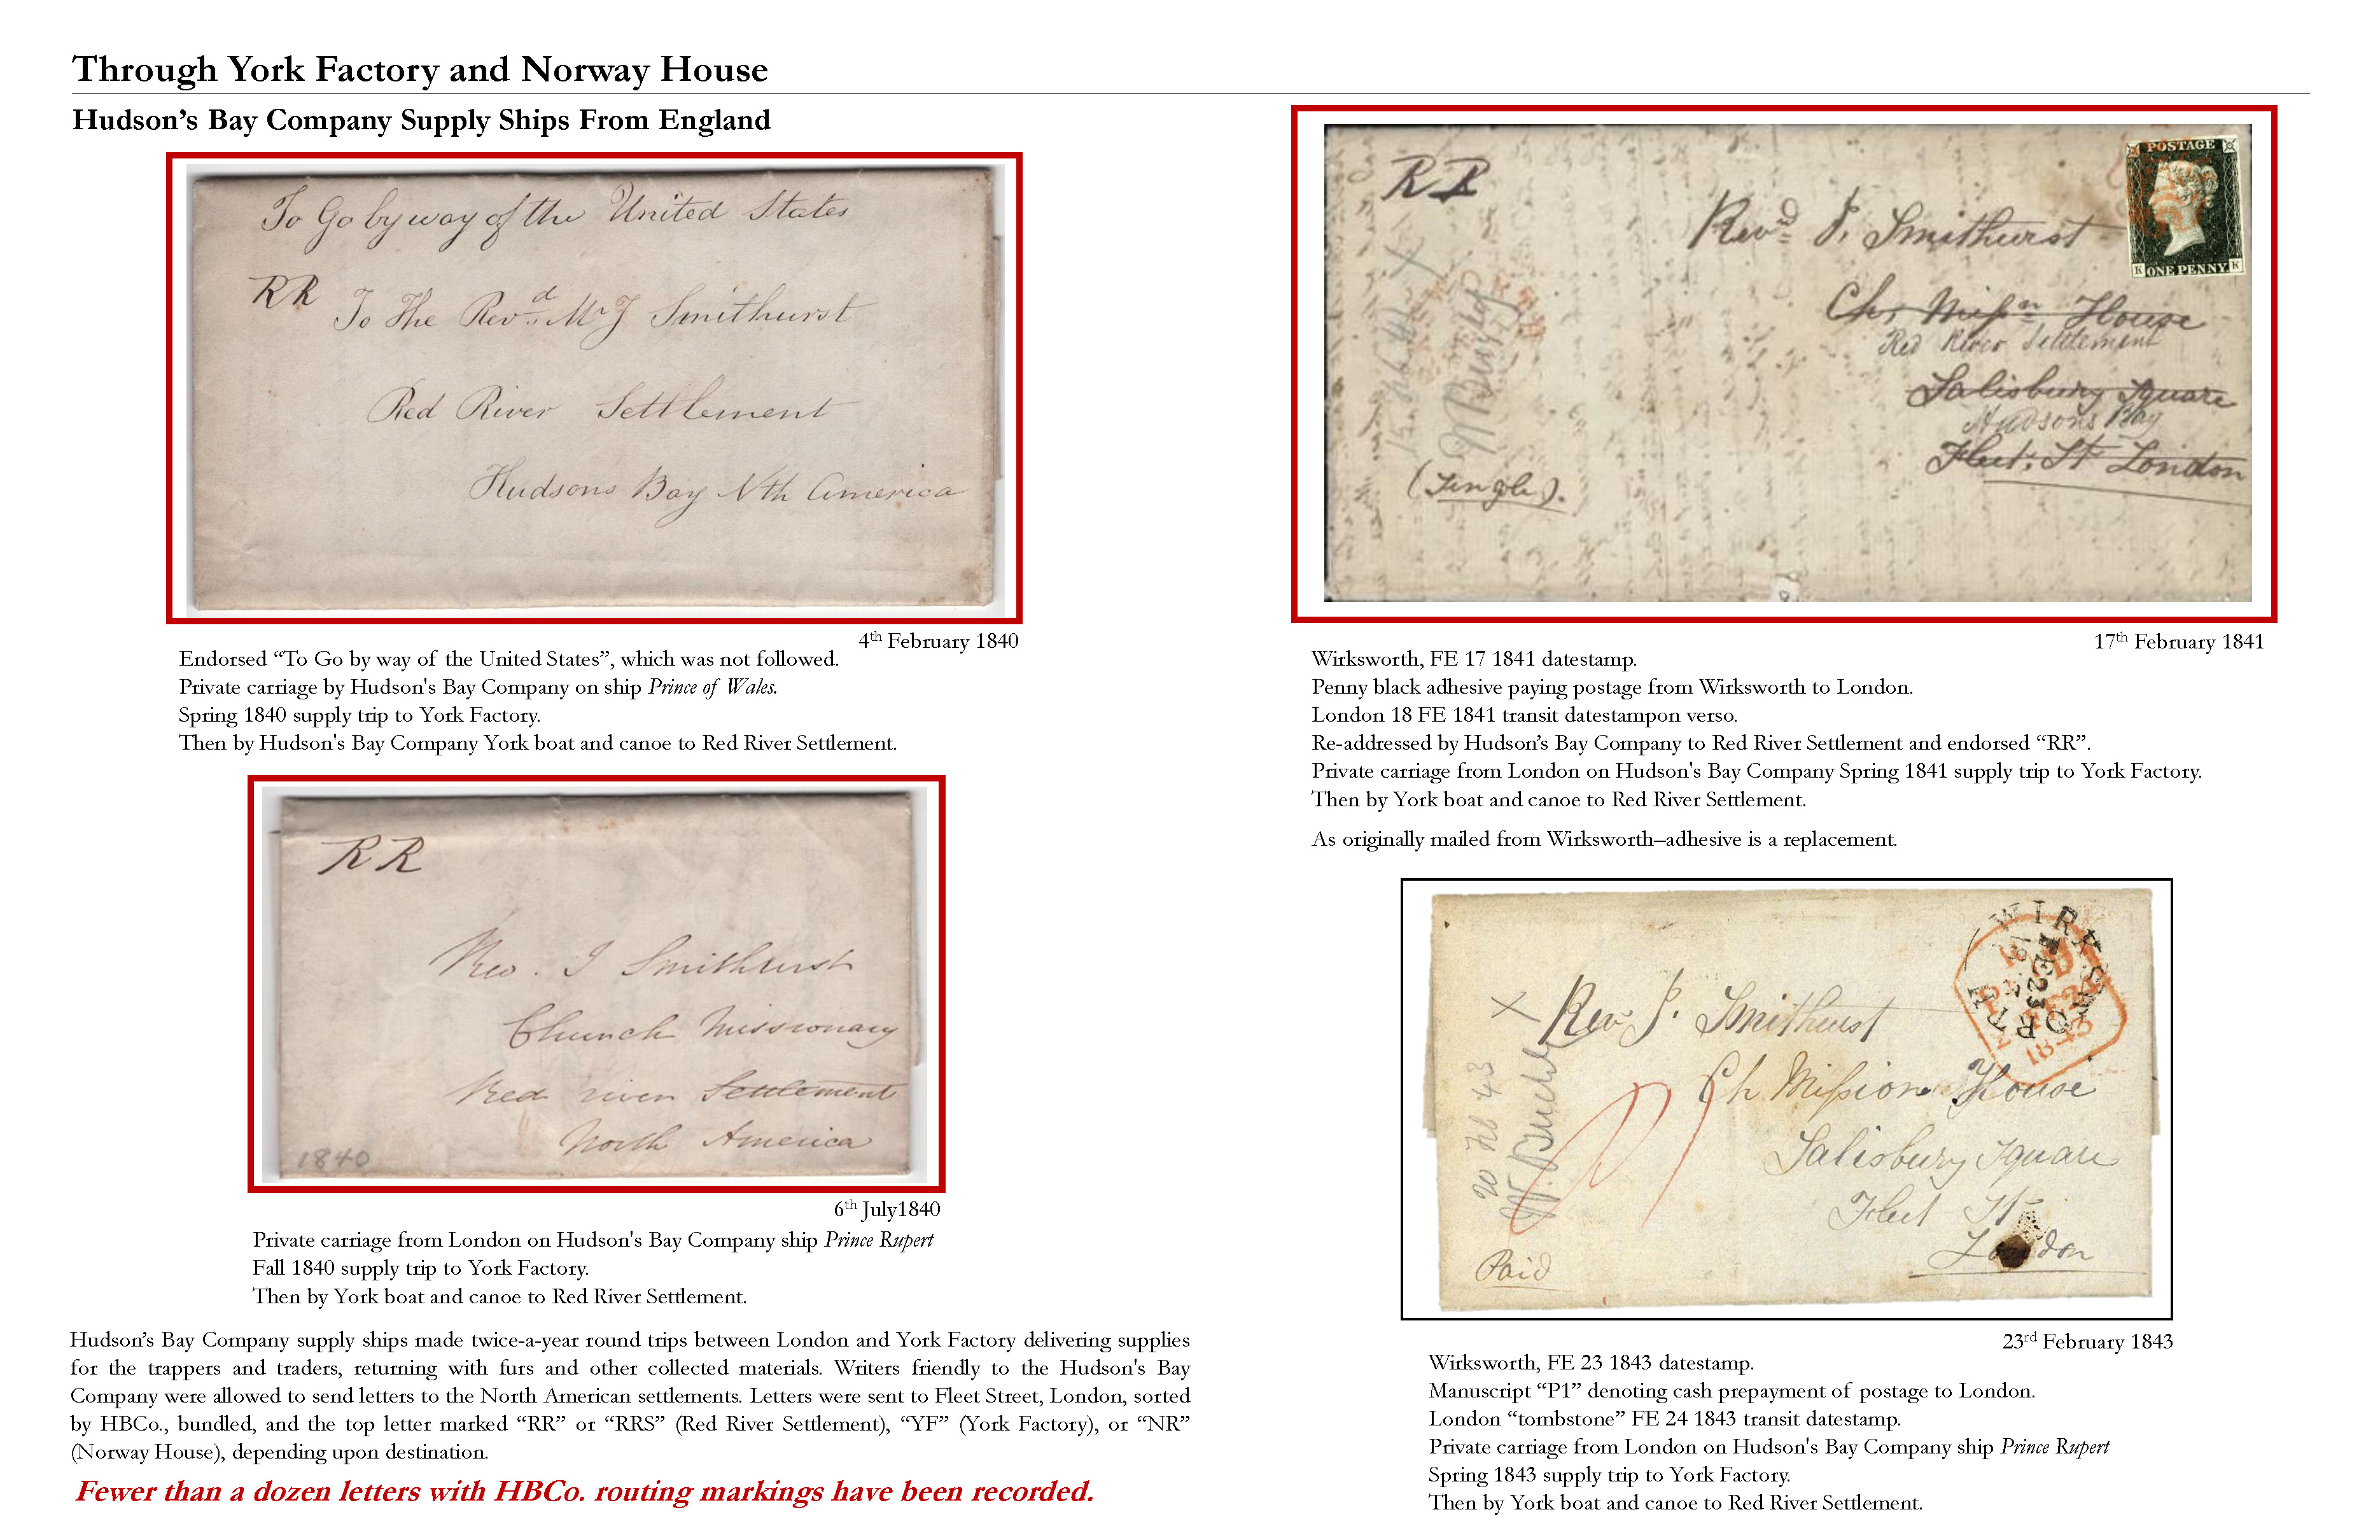 Through York Factory and Norway House
Hudson’s Bay Company Supply Ships From England
To Go by way of the United States
RR
To The Revd. Mr J Smithurst
Red River Settlement
Hudsons Bay Nth America
4th February 1840
Endorsed “To Go by way of the United States”, which was not followed.
Private carriage by Hudson's Bay Company on ship Prince of Wales.
Spring 1840 supply trip to York Factory.
Then by Hudson's Bay Company York boat and canoe to Red River Settlement.
RR
Rev. J Smithurst
Church Missionary
Red river Settlement
North America
1840
6th July1840
Private carriage from London on Hudson's Bay Company ship Prince Rupert
Fall 1840 supply trip to York Factory.
Then by York boat and canoe to Red River Settlement.
Hudson’s Bay Company supply ships made twice-a-year round trips between London and York Factory delivering supplies
for the trappers and traders, returning with furs and other collected materials. Writers friendly to the Hudson's Bay
Company were allowed to send letters to the North American settlements. Letters were sent to Fleet Street, London, sorted
by HBCo., bundled, and the top letter marked “RR” or “RRS” (Red River Settlement), “YF” (York Factory), or “NR”
(Norway House), depending upon destination.
Fewer than a dozen letters with HBCo. routing markings have been recorded.
RR
POSTAGE
K ONE PENNY K
Revd J. Smithurst
Ch. Missn House
Red River Settlement
Salisbury Square
Hudsons Bay
Fleet St London
(Single).
17th February 1841
Wirksworth, FE 17 1841 datestamp.
Penny black adhesive paying postage from Wirksworth to London.
London 18 FE 1841 transit datestampon verso.
Re-addressed by Hudson’s Bay Company to Red River Settlement and endorsed “RR”.
Private carriage from London on Hudson's Bay Company Spring 1841 supply trip to York Factory.
Then by York boat and canoe to Red River Settlement.
As originally mailed from Wirksworth–adhesive is a replacement.
WIRKSWORTH
FE 23
1843
Rev J. Smithurst
Ch Mission House
Salisbury Square
Fleet St
London
20 Feb 43
Paid
23rd February 1843
Wirksworth, FE 23 1843 datestamp.
Manuscript “P1” denoting cash prepayment of postage to London.
London “tombstone” FE 24 1843 transit datestamp.
Private carriage from London on Hudson's Bay Company ship Prince Rupert
Spring 1843 supply trip to York Factory.
Then by York boat and canoe to Red River Settlement.